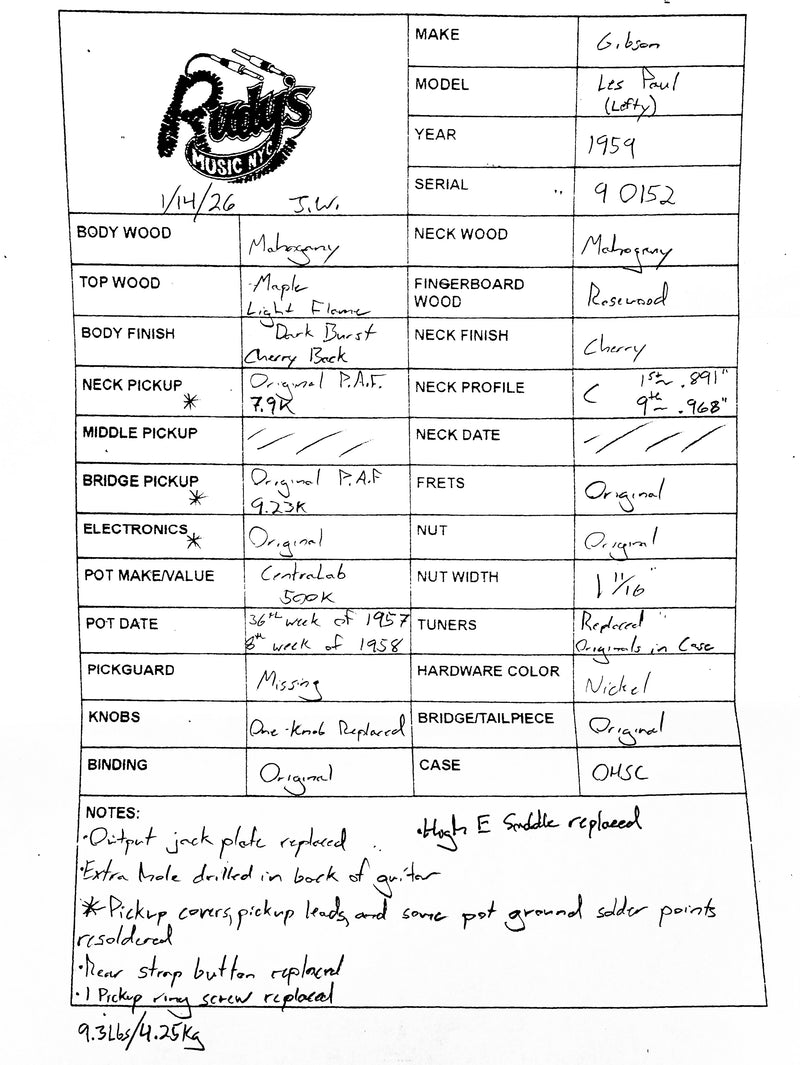 Rudy's
MUSIC NYC
1/14/26 J.W.
MAKE Gibson
MODEL Les Paul
(Lefty)
YEAR 1959
SERIAL 9 0152
BODY WOOD Mahogany
NECK WOOD Mahogany
TOP WOOD Maple
Light Flame
FINGERBOARD
WOOD Rosewood
BODY FINISH Dark Burst
Cherry Back
NECK FINISH Cherry
NECK PICKUP * Original P.A.F.
7.9K
NECK PROFILE C 1st ~ .891"
9th ~ .968"
MIDDLE PICKUP / / / /
NECK DATE / / / /
BRIDGE PICKUP * Original P.A.F
9.23K
FRETS Original
ELECTRONICS * Original
NUT Original
POT MAKE/VALUE Centralab
500K
NUT WIDTH 1 11/16"
POT DATE 36th week of 1957
8th week of 1958
TUNERS Replaced
Originals in Case
PICKGUARD Missing
HARDWARE COLOR Nickel
KNOBS One-Knob Replaced
BRIDGE/TAILPIECE Original
BINDING Original
CASE OHSC
NOTES:
·Output jack plate replaced
·High E Saddle replaced
·Extra hole drilled in back of guitar
*Pickup covers, pickup leads, and some pot ground solder points
resoldered
·Rear strap button replaced
·1 Pickup ring screw replaced
9.3Lbs/4.25Kg